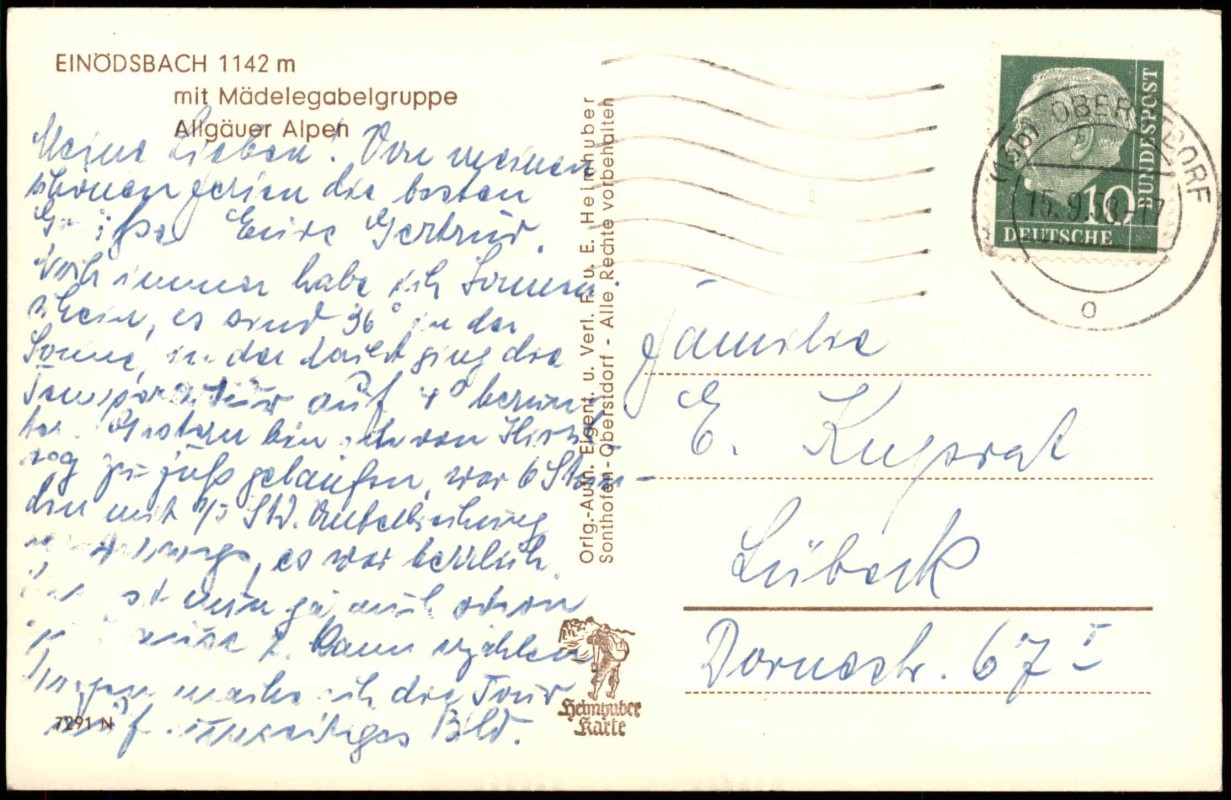 EINÖDSBACH 1142 m
mit Mädelegabelgruppe
Allgäuer Alpen
Meine Lieben! Von meinen
schönen Ferien die besten
Grüße Eure Gertrud.
Noch immer habe ich Sonnen-
schein, es sind 36° in der
Sonne, in der Nacht ging die
Temperatur auf 4° herun-
ter. Gestern bin ich von
zu Fuß gelaufen, war 6 Stun-
den mit 1/2 Std. Unterbrechung
es war herrlich.
nun ja auch schon
Dann erzählen
Morgen mache ich die Tour
auf umseitiges Bild.
7291 N
Orig.-Aufn. Eigent. u. Verl. F. u. E. Heimhuber
Sonthofen-Oberstdorf - Alle Rechte vorbehalten
Heimhuber
Karte
DEUTSCHE
BUNDESPOST
10
(13b) OBERSTDORF
Familie
E. Kuprat
Lübeck
Dornestr. 67 I